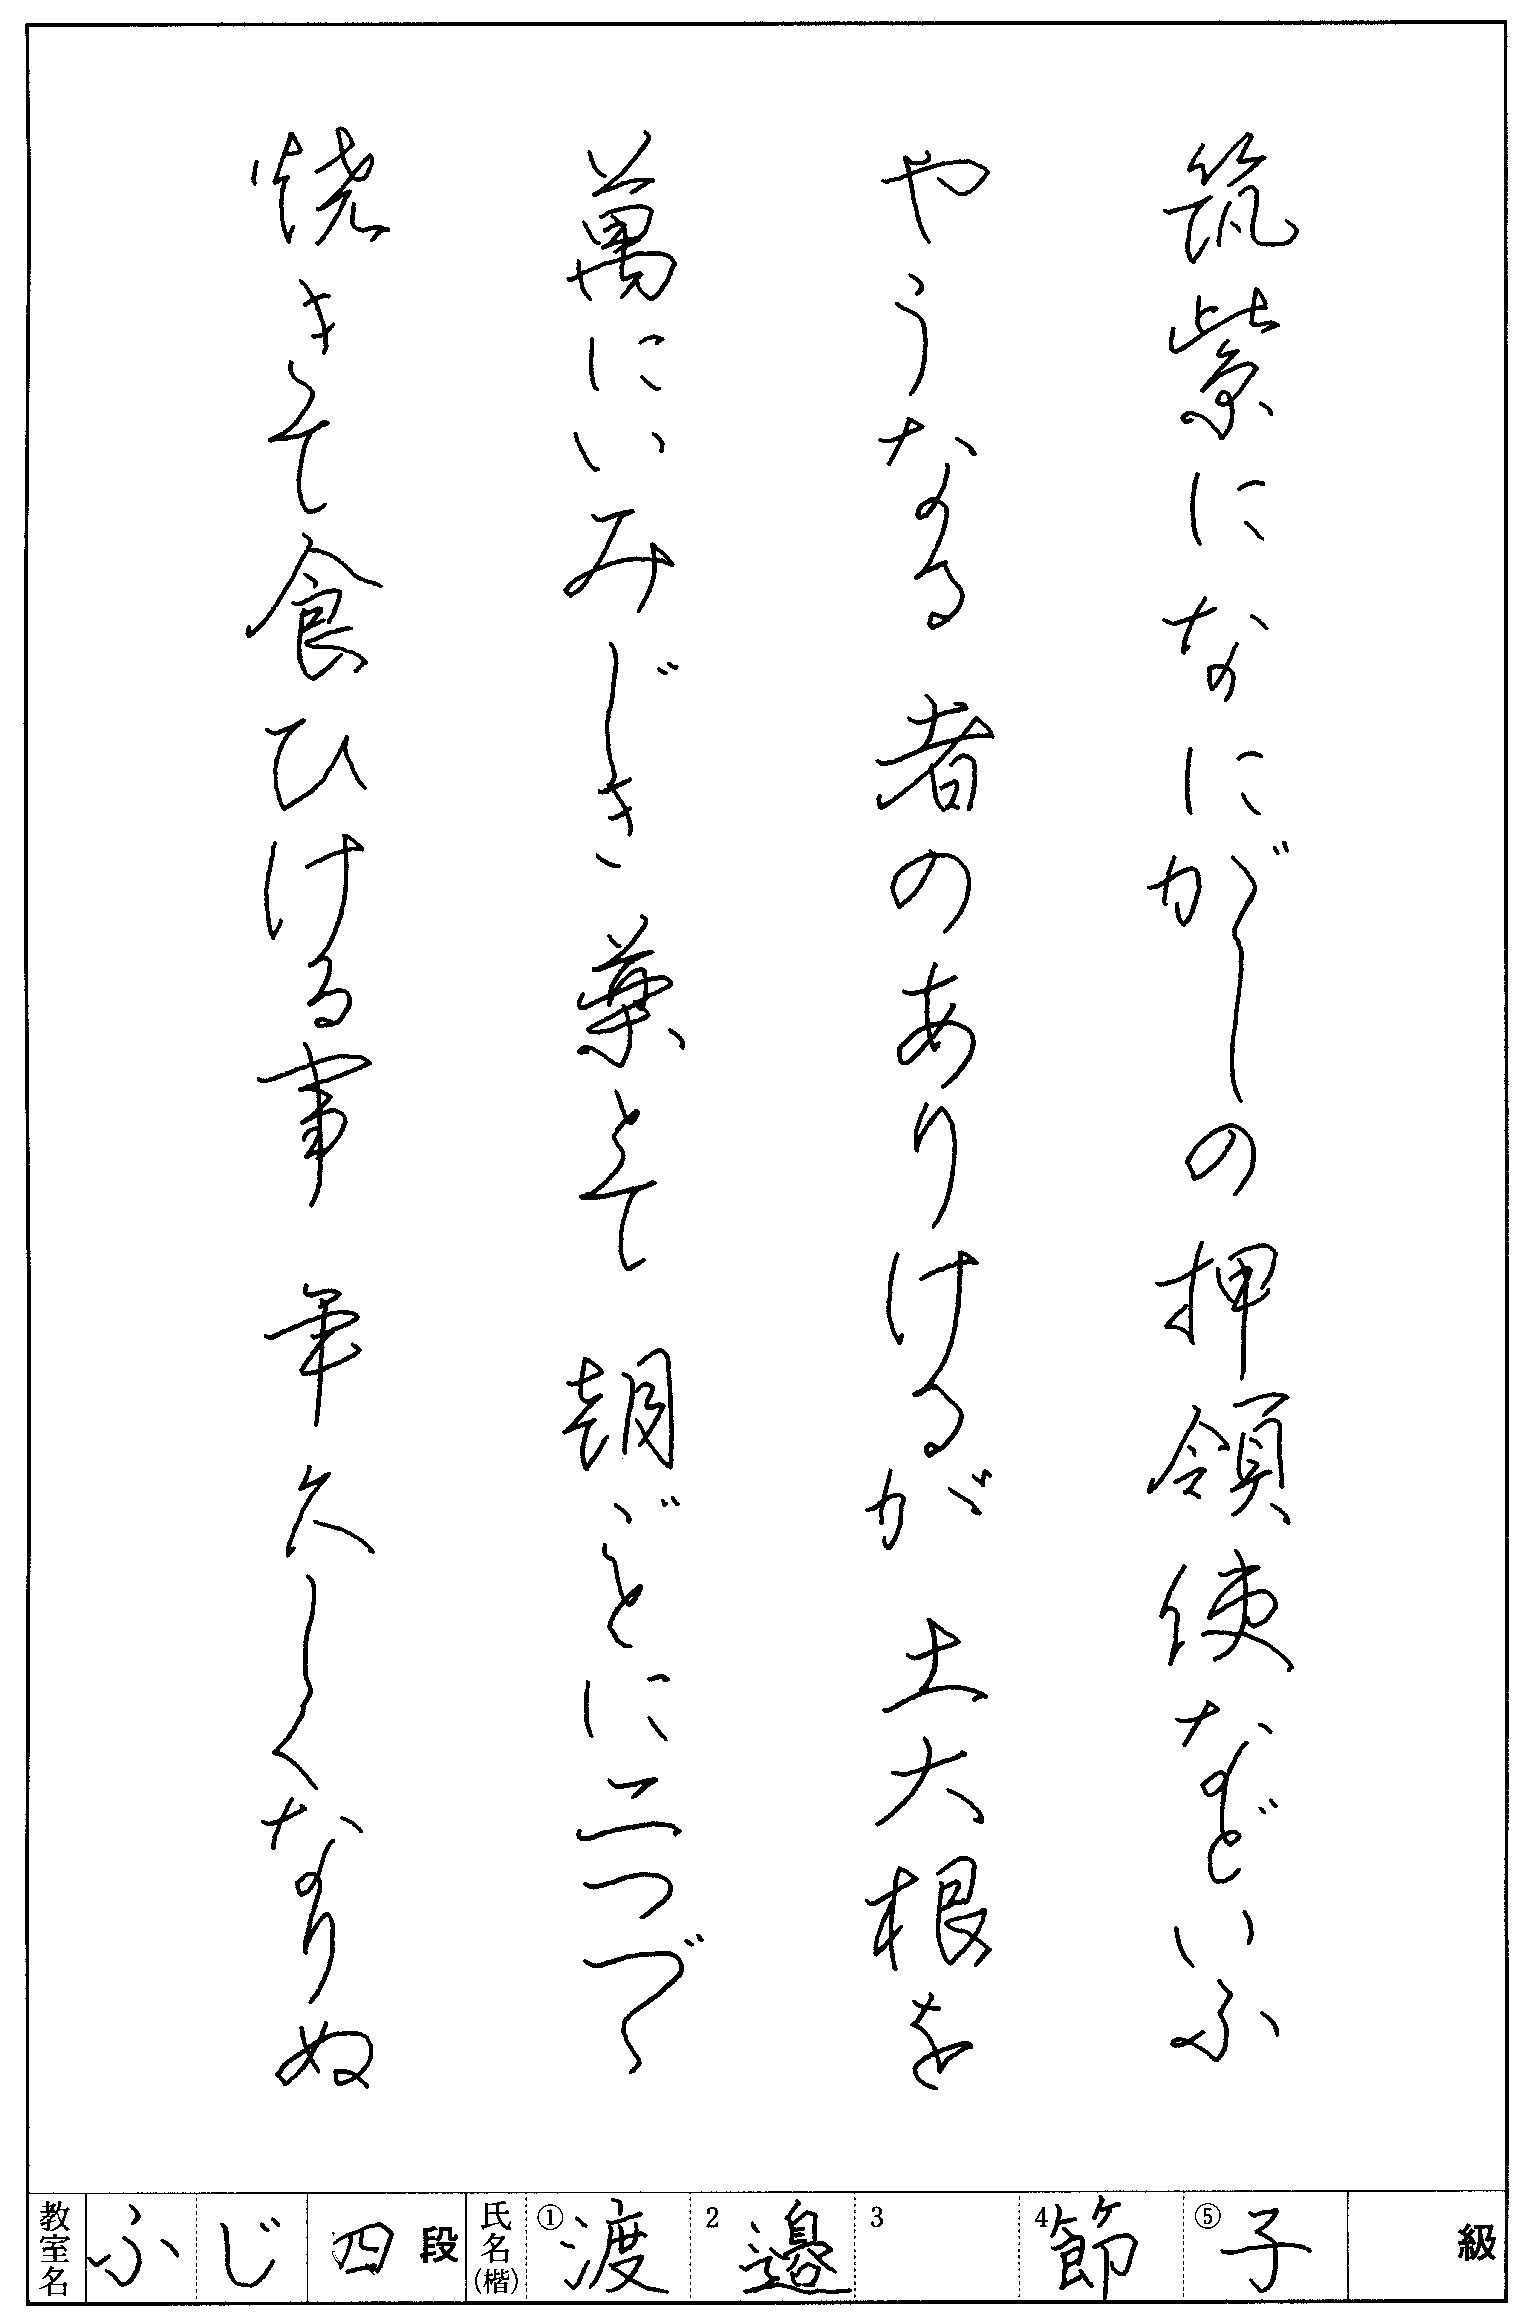 筑紫になにがしの押領使などいふ
やうなる者のありけるが 土大根を
萬にいみじき薬とて 朝ごとに二つづゝ
焼きて食ひける事 年久しくなりぬ
教室名 ふじ 四 段 氏名(楷) ① 渡 2 邉 3 4 節 ⑤ 子 級